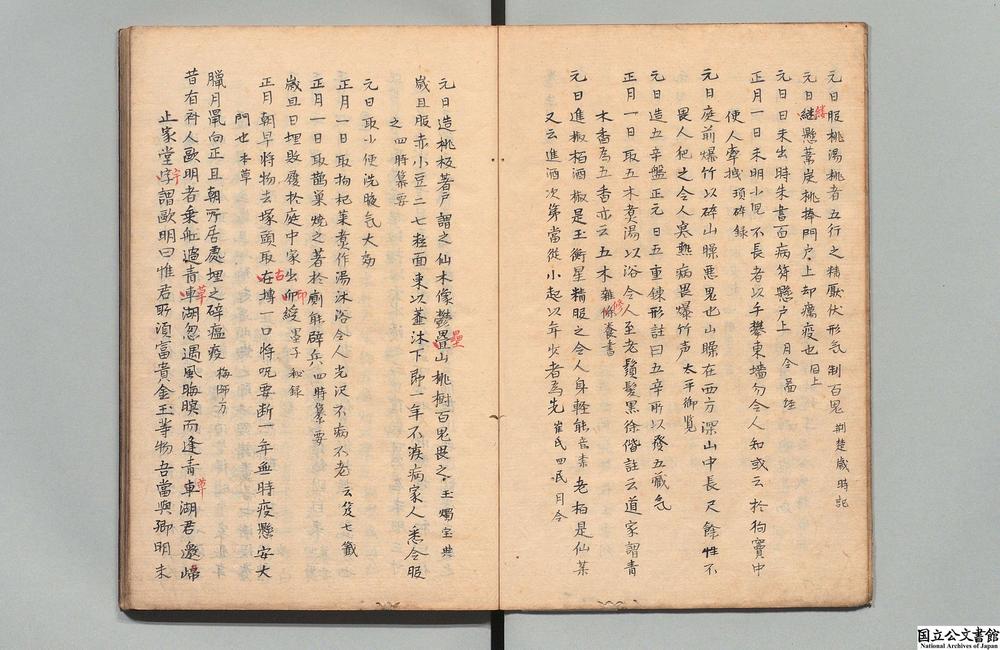 元日服桃湯桃者五行之精厭伏形氣制百鬼 荆楚歳時記
元日継懸葦炭桃捧門戸上却癘疫也 同上
縣
元日日未出時朱書百病符懸戸上 月令啚經
正月一日未明小児不長者以手攀東墻勿令人知或云於狗竇中
使人牽拽 瑣碎録
元日庭前爆竹以碎山臊悪鬼也山臊在西方深山中長尺餘性不
畏人犯之令人寒熱病畏爆竹声 太平御覧
元日造五辛盤正元日五重錬形註曰五辛所以發五藏氣
正月一日取五木煮湯以浴令人至老鬚髪黒徐偕註云道家謂青
木香為五香亦云五木 雜修養書
修
元日進椒栢酒椒是玉衡星精服之令人身軽能 老栢是仙薬
又云進酒次第當從小起以年少者為先 崔氏四民月令
元日造桃板著戸謂之仙木像鬱畳山桃樹百鬼畏之 玉燭宝典
壘
歳旦服赤小豆二七粒面東以虀汁下即一年不疾病家人悉令服
之 四時纂要
元日取小便洗腋氣大効
正月一日取拘杞菜煮作湯沐浴令人光沢不病不老 云笈七籤
正月一日取鵲巣燒之著於廁能辟兵 四時纂要
歳旦日埋敗履於庭中家出卯綬 墨子秘録
印
正月朝早将物去塚頭取在搏一口将呪要断一年無時疫懸安大
古
門也 本草
臘月鼠向正旦朝所居處埋之碎瘟疫 梅師方
昔有啇人歐明者乗舡過青車湖忽遇風晦暝而逢青車湖君邀歸
草
草
止家堂字謂歐明曰惟君所湏富貴金玉等物吾當與卿明未
宇
国立公文書館
National Archives of Japan